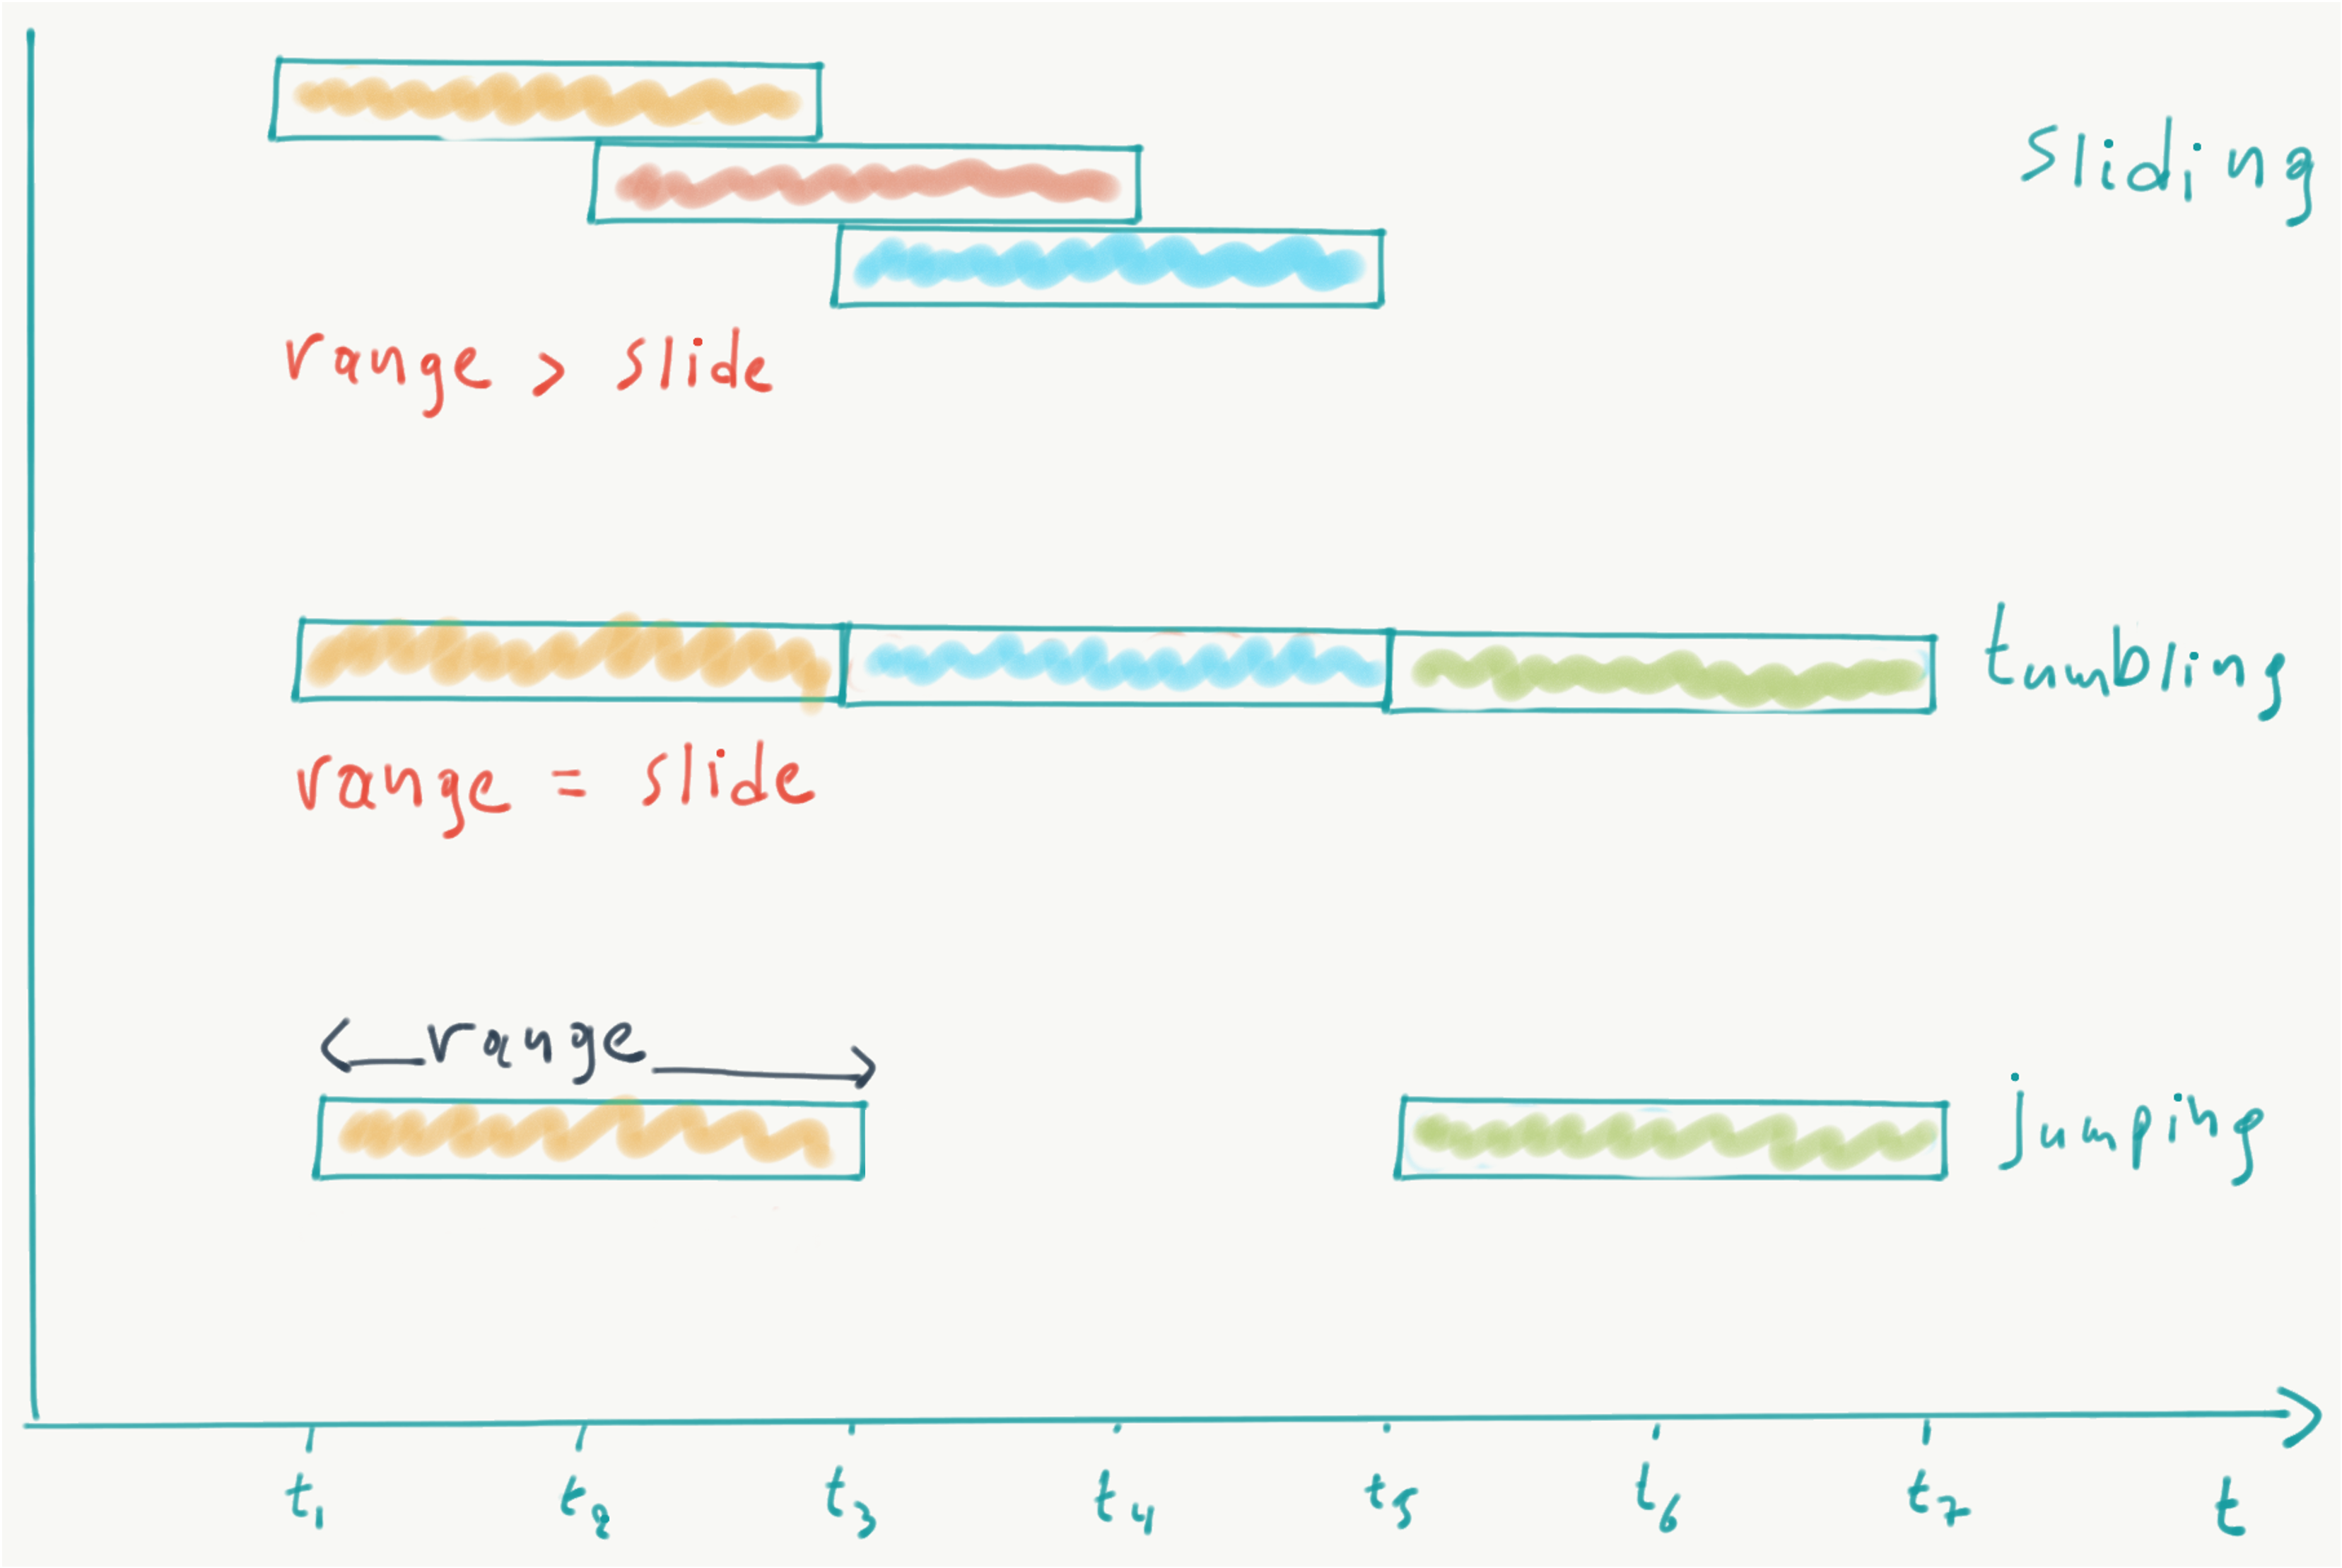 sliding
range > slide
tumbling
range = slide
range
jumping
t1 t2 t3 t4 t5 t6 t7 t